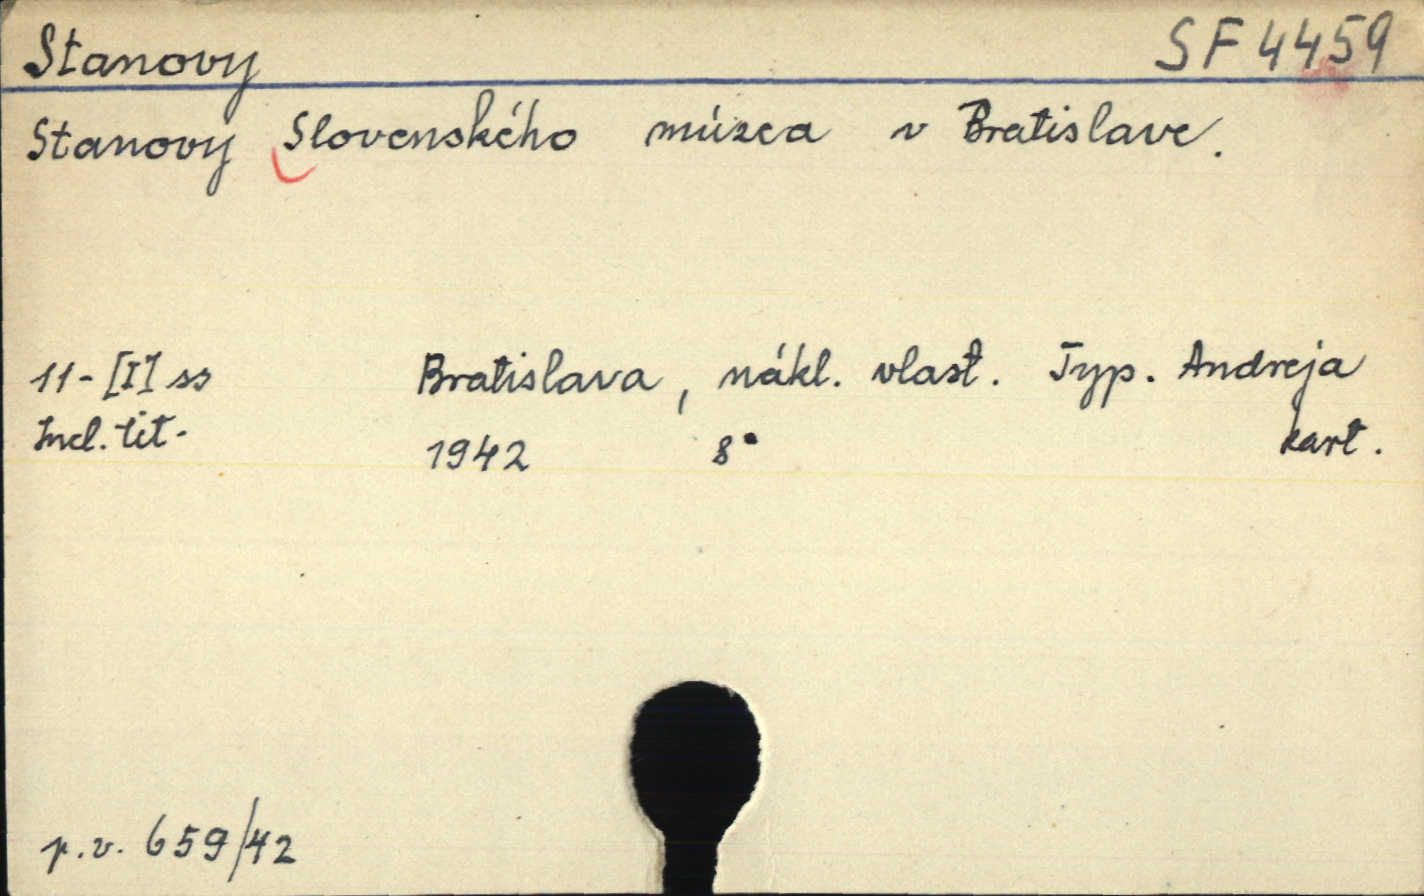 Stanovy SF 4459
Stanovy Slovenského múzea v Bratislave.
11-[I] ss Bratislava, nákl. vlast. Typ. Andreja
Incl. tit. 1942 8° kart.
p.v. 659/42